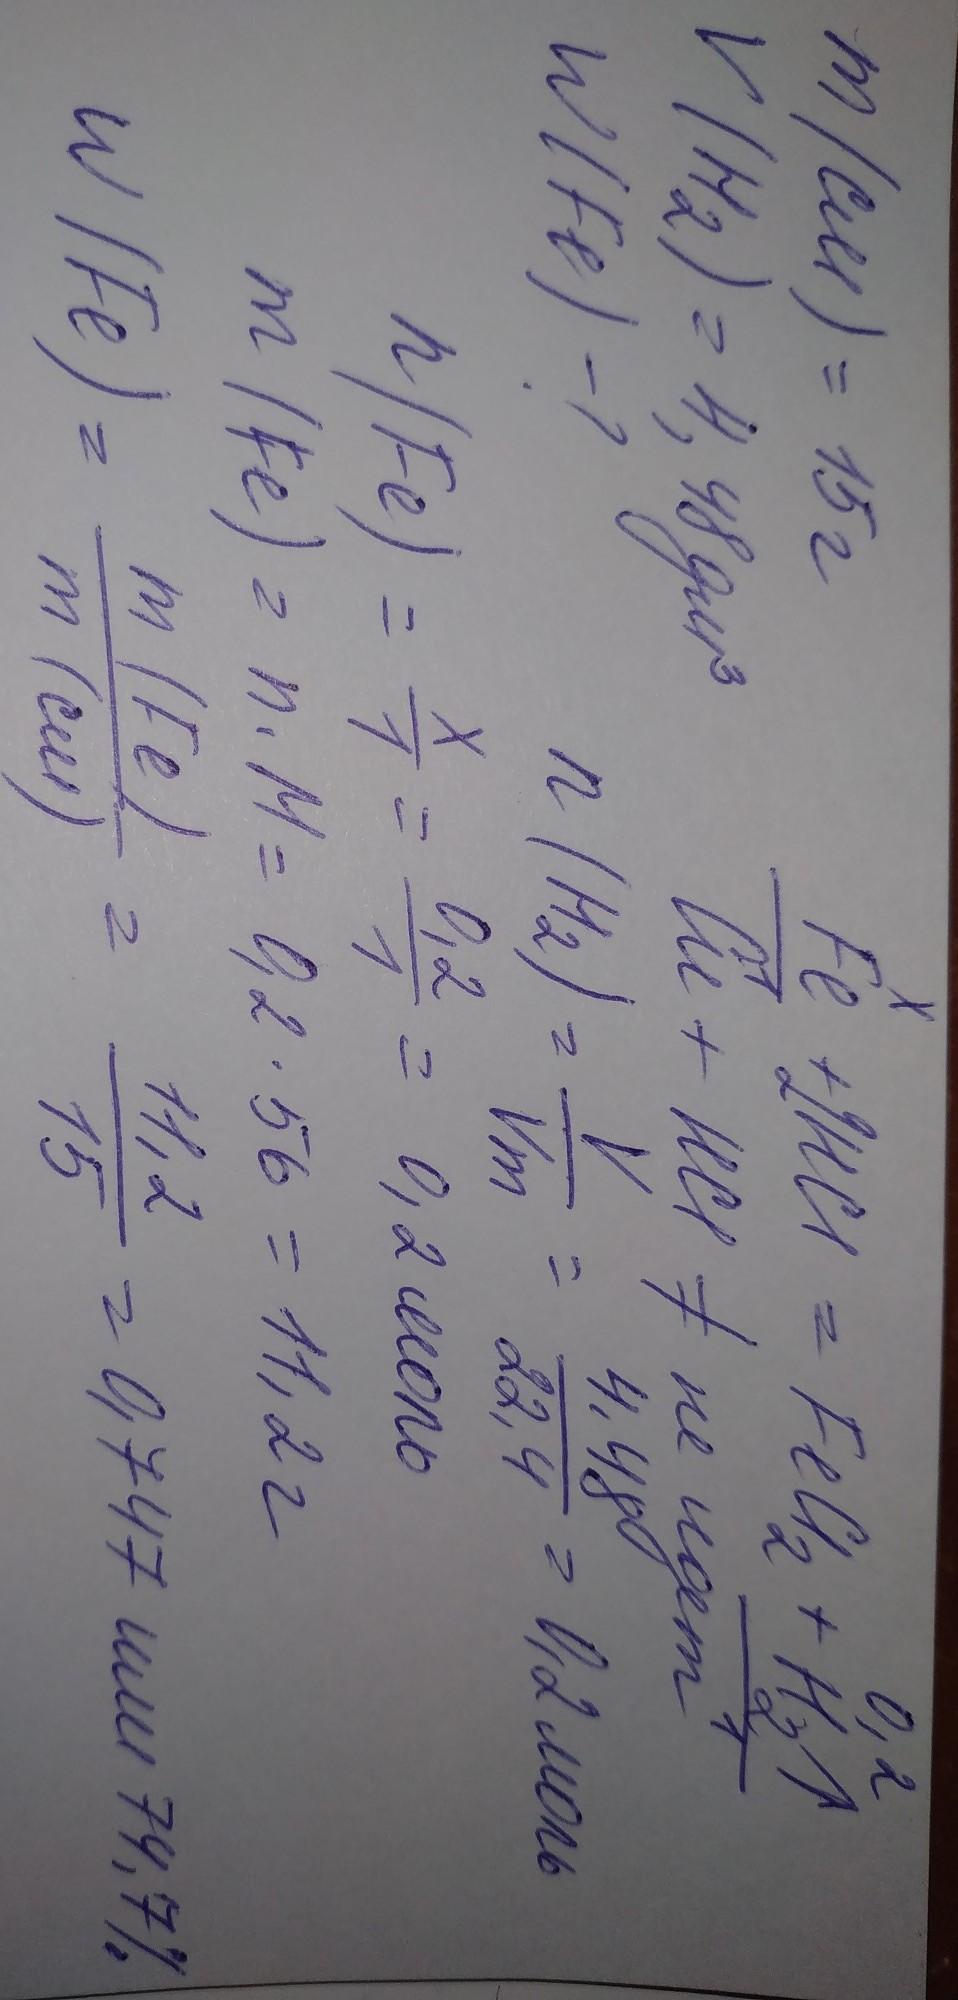 m(см) = 15г
V(H2) = 4,48дм³
W(Fe) - ?
x 0,2
Fe + 2HCl = FeCl2 + H2↑
1 1
Cu + HCl ≠ не идет
n(H2) = V/Vm = 4,48/22,4 = 0,2 моль
n(Fe) = x/1 = 0,2/1 = 0,2 моль
m(Fe) = n·M = 0,2·56 = 11,2г
W(Fe) = m(Fe)/m(см) = 11,2/15 = 0,747 или 74,7%